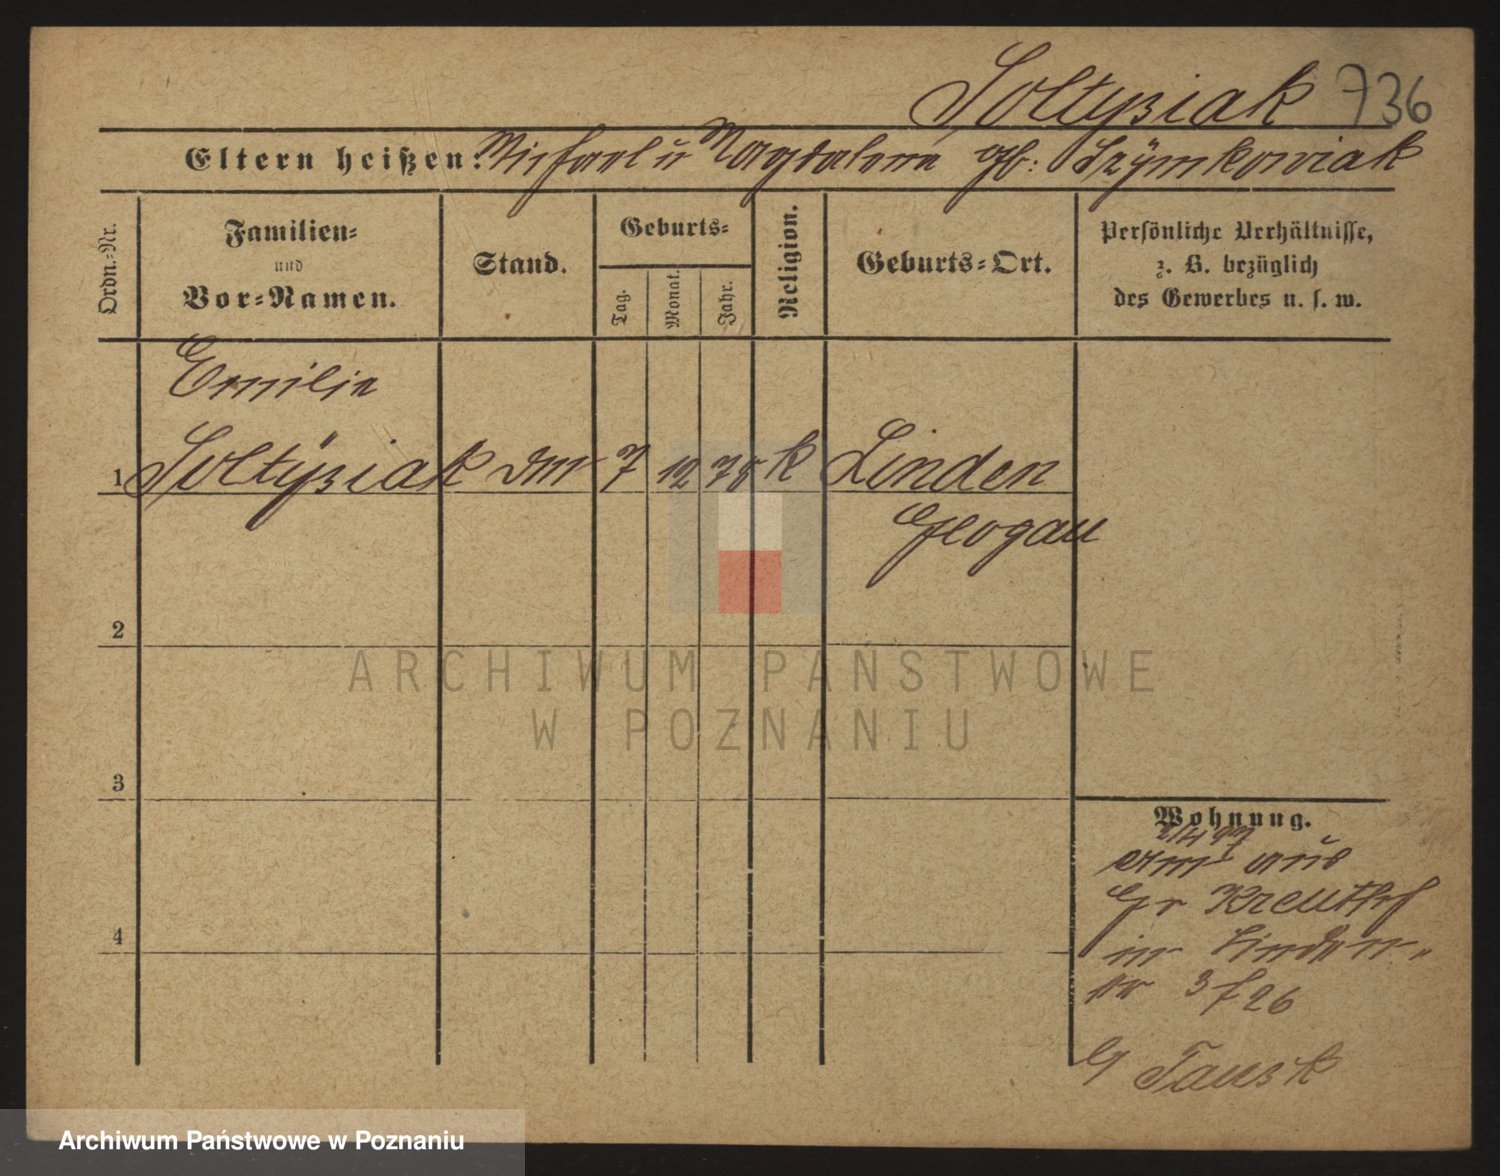 Soltysiak 736
Eltern heißen: Michael u Magdalena gb: Szÿmkowiak
Ordn.-Nr.
Familien-
und
Vor-Namen.
Stand.
Geburts-
Tag.
Monat.
Jahr.
Religion.
Geburts-Ort.
Persönliche Verhältnisse,
z. B. bezüglich
des Gewerbes u. s. w.
Emilie
1 Soltÿsiak 7 12 78 k Linden
Glogau
2
3
4
Wohnung.
aus
Gr Kreutsch
in Linden-
No 3 f 26
b/ Tausk
ARCHIWUM PAŃSTWOWE
W POZNANIU
Archiwum Państwowe w Poznaniu